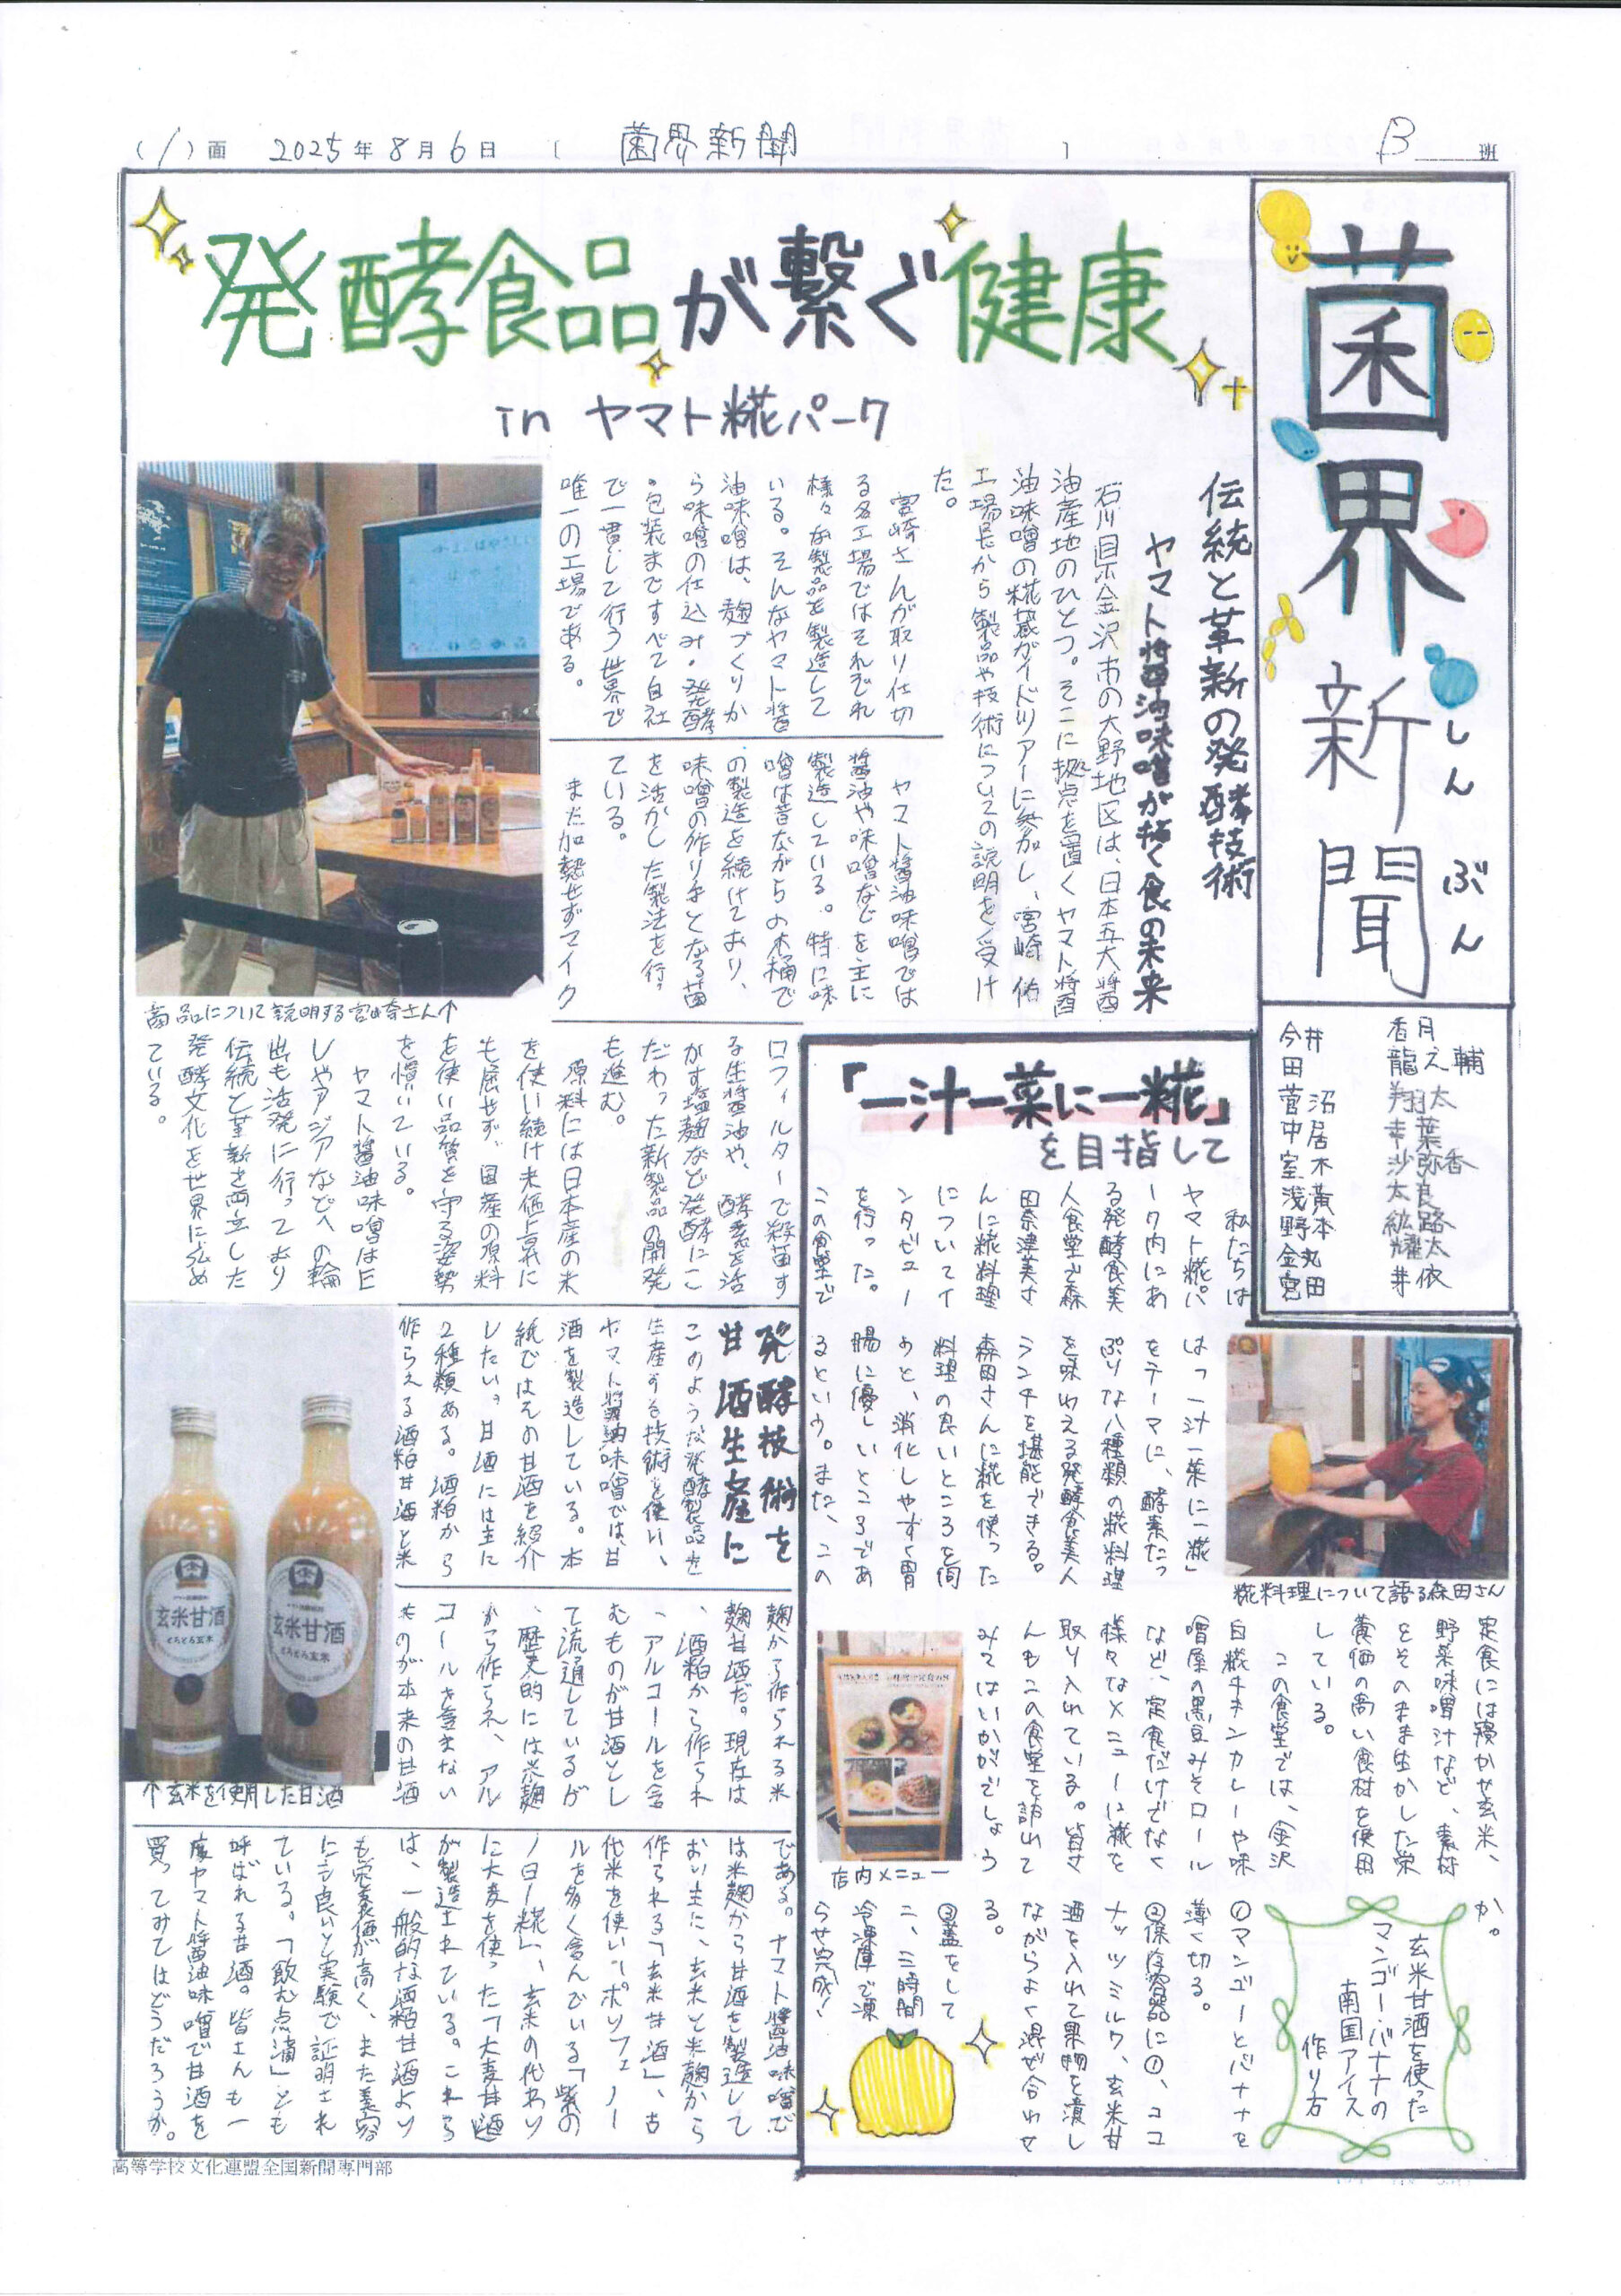 (1)面 2025年8月6日 〔 菌界新聞 〕 B 班
菌界新聞
しんぶん
発酵食品が繋ぐ健康
in ヤマト糀パーク
伝統と革新の発酵技術
ヤマト醤油味噌が描く食の未来
石川県金沢市の大野地区は、日本五大醤
油産地のひとつ。そこに拠点を置くヤマト醤
油味噌の糀蔵ガイドツアーに参加し、宮崎 佑
工場長から製品や技術についての説明を受け
た。
宮崎さんが取り仕切
る各工場ではそれぞれ
様々な製品を製造して
いる。そんなヤマト醤
油味噌は、麹づくりか
ら味噌の仕込み・発酵
・包装まですべて自社
で一貫して行う世界で
唯一の工場である。
ヤマト醤油味噌では
醤油や味噌などを主に
製造している。特に味
噌は昔ながらの木桶で
の製造を続けており、
味噌の作り手となる菌
を活かした製法を行っ
ている。
また加熱せずマイク
ロフィルターで殺菌す
る生醤油や、酵素を活
かす塩麹など発酵にこ
だわった新製品の開発
も進む。
原料には日本産の米
を使い続け米価上昇に
も屈せず、国産の原料
を使い品質を守る姿勢
を貫いている。
ヤマト醤油味噌はE
UやアジアなどへのN輸
出も活発に行っており
伝統と革新を両立した
発酵文化を世界に広め
ている。
商品について説明する宮崎さん↑
今井 香月
田 龍之輔
菅沼 翔太
中居 幸葉
室木 沙弥香
浅黄 太良
野本 紘路
金丸 耀太
宮田 芽依
「一汁一菜に一糀」
を目指して
私たちは
ヤマト糀パ
ーク内にあ
る発酵食美
人食堂で森
田奈津美さ
んに糀料理
についてイ
ンタビュー
を行った。
この食堂で
は「一汁一菜に一糀」
をテーマに、酵素たっ
ぷりな八種類の糀料理
を味わえる発酵食美人
ランチを堪能できる。
森田さんに糀を使った
料理の良いところを伺
うと、消化しやすく胃
腸に優しいところであ
るという。また、この
糀料理について語る森田さん
定食には寝かせ玄米、
野菜味噌汁など、素材
をそのまま生かした栄
養価の高い食材を使用
している。
この食堂では、金沢
白糀チキンカレーや味
噌屋の黒豆みそロール
など、定食だけでなく
様々なメニューに糀を
取り入れている。皆さ
んもこの食堂を訪れて
みてはいかがでしょう
か。
店内メニュー
玄米甘酒を使った
マンゴー・バナナの
南国アイス
作り方
①マンゴーとバナナを
薄く切る。
②保存容器に①、ココ
ナッツミルク、玄米甘
酒を入れて果物を潰し
ながらよく混ぜ合わせ
る。
③蓋をして
二、三時間
冷凍庫で凍
らせ完成！
発酵技術を
甘酒生産に
このような発酵製品を
生産する技術を使い、
ヤマト醤油味噌では、甘
酒を製造している。本
紙ではその甘酒を紹介
したい。甘酒には主に
2種類ある。酒粕から
作られる酒粕甘酒と米
麹から作られる米
麹甘酒だ。現在は
、酒粕から作られ
、アルコールを含
むものが甘酒とし
て流通しているが
、歴史的には米麹
から作られ、アル
コールを含まない
ものが本来の甘酒
である。ヤマト醤油味噌で
は米麹から甘酒を製造して
おり主に、玄米と米麹から
作られる「玄米甘酒」、古
代米を使いポリフェノー
ルを多く含んでいる「紫の
ノ日ー糀」、玄米の代わり
に大麦を使った「大麦甘酒」
が製造されている。これら
は、一般的な酒粕甘酒より
も栄養価が高く、また美容
にも良いと実験で証明され
ている。「飲む点滴」とも
呼ばれる甘酒。皆さんも一
度ヤマト醤油味噌で甘酒を
買ってみてはどうだろうか。
玄米甘酒
とろとろ玄米
玄米甘酒
とろとろ玄米
↑玄米を使用した甘酒
高等学校文化連盟全国新聞専門部